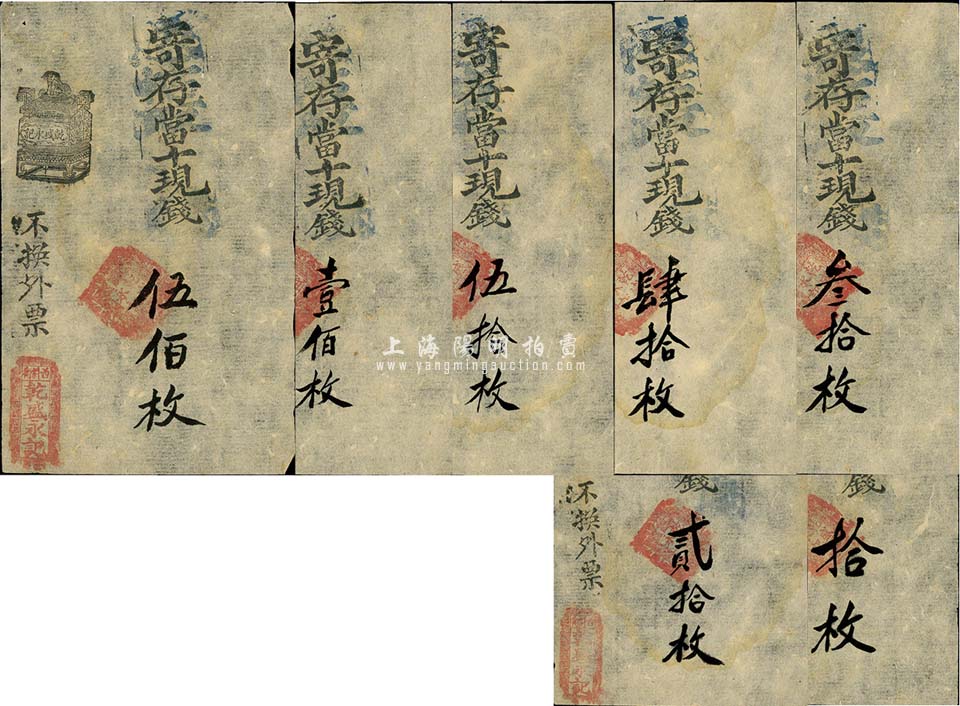 寄存當十現錢
伍佰枚
乾盛永記
不換外票
乾盛永記
寄存當十現錢
壹佰枚
寄存當十現錢
伍拾枚
寄存當十現錢
肆拾枚
寄存當十現錢
叁拾枚
上海陽明拍賣
www.yangmingauction.com
錢
貳拾枚
不換外票
記
錢
拾枚